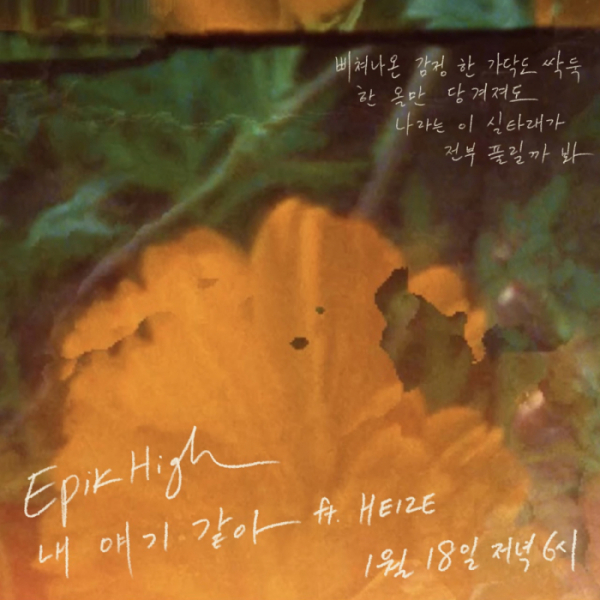 삐쳐나온 감정 한 가닥도 싹둑
한 올만 당겨져도
나라는 이 실타래가
전부 풀릴까 봐
Epik High
내 얘기 같아 ft. HEIZE
1월 18일 저녁 6시